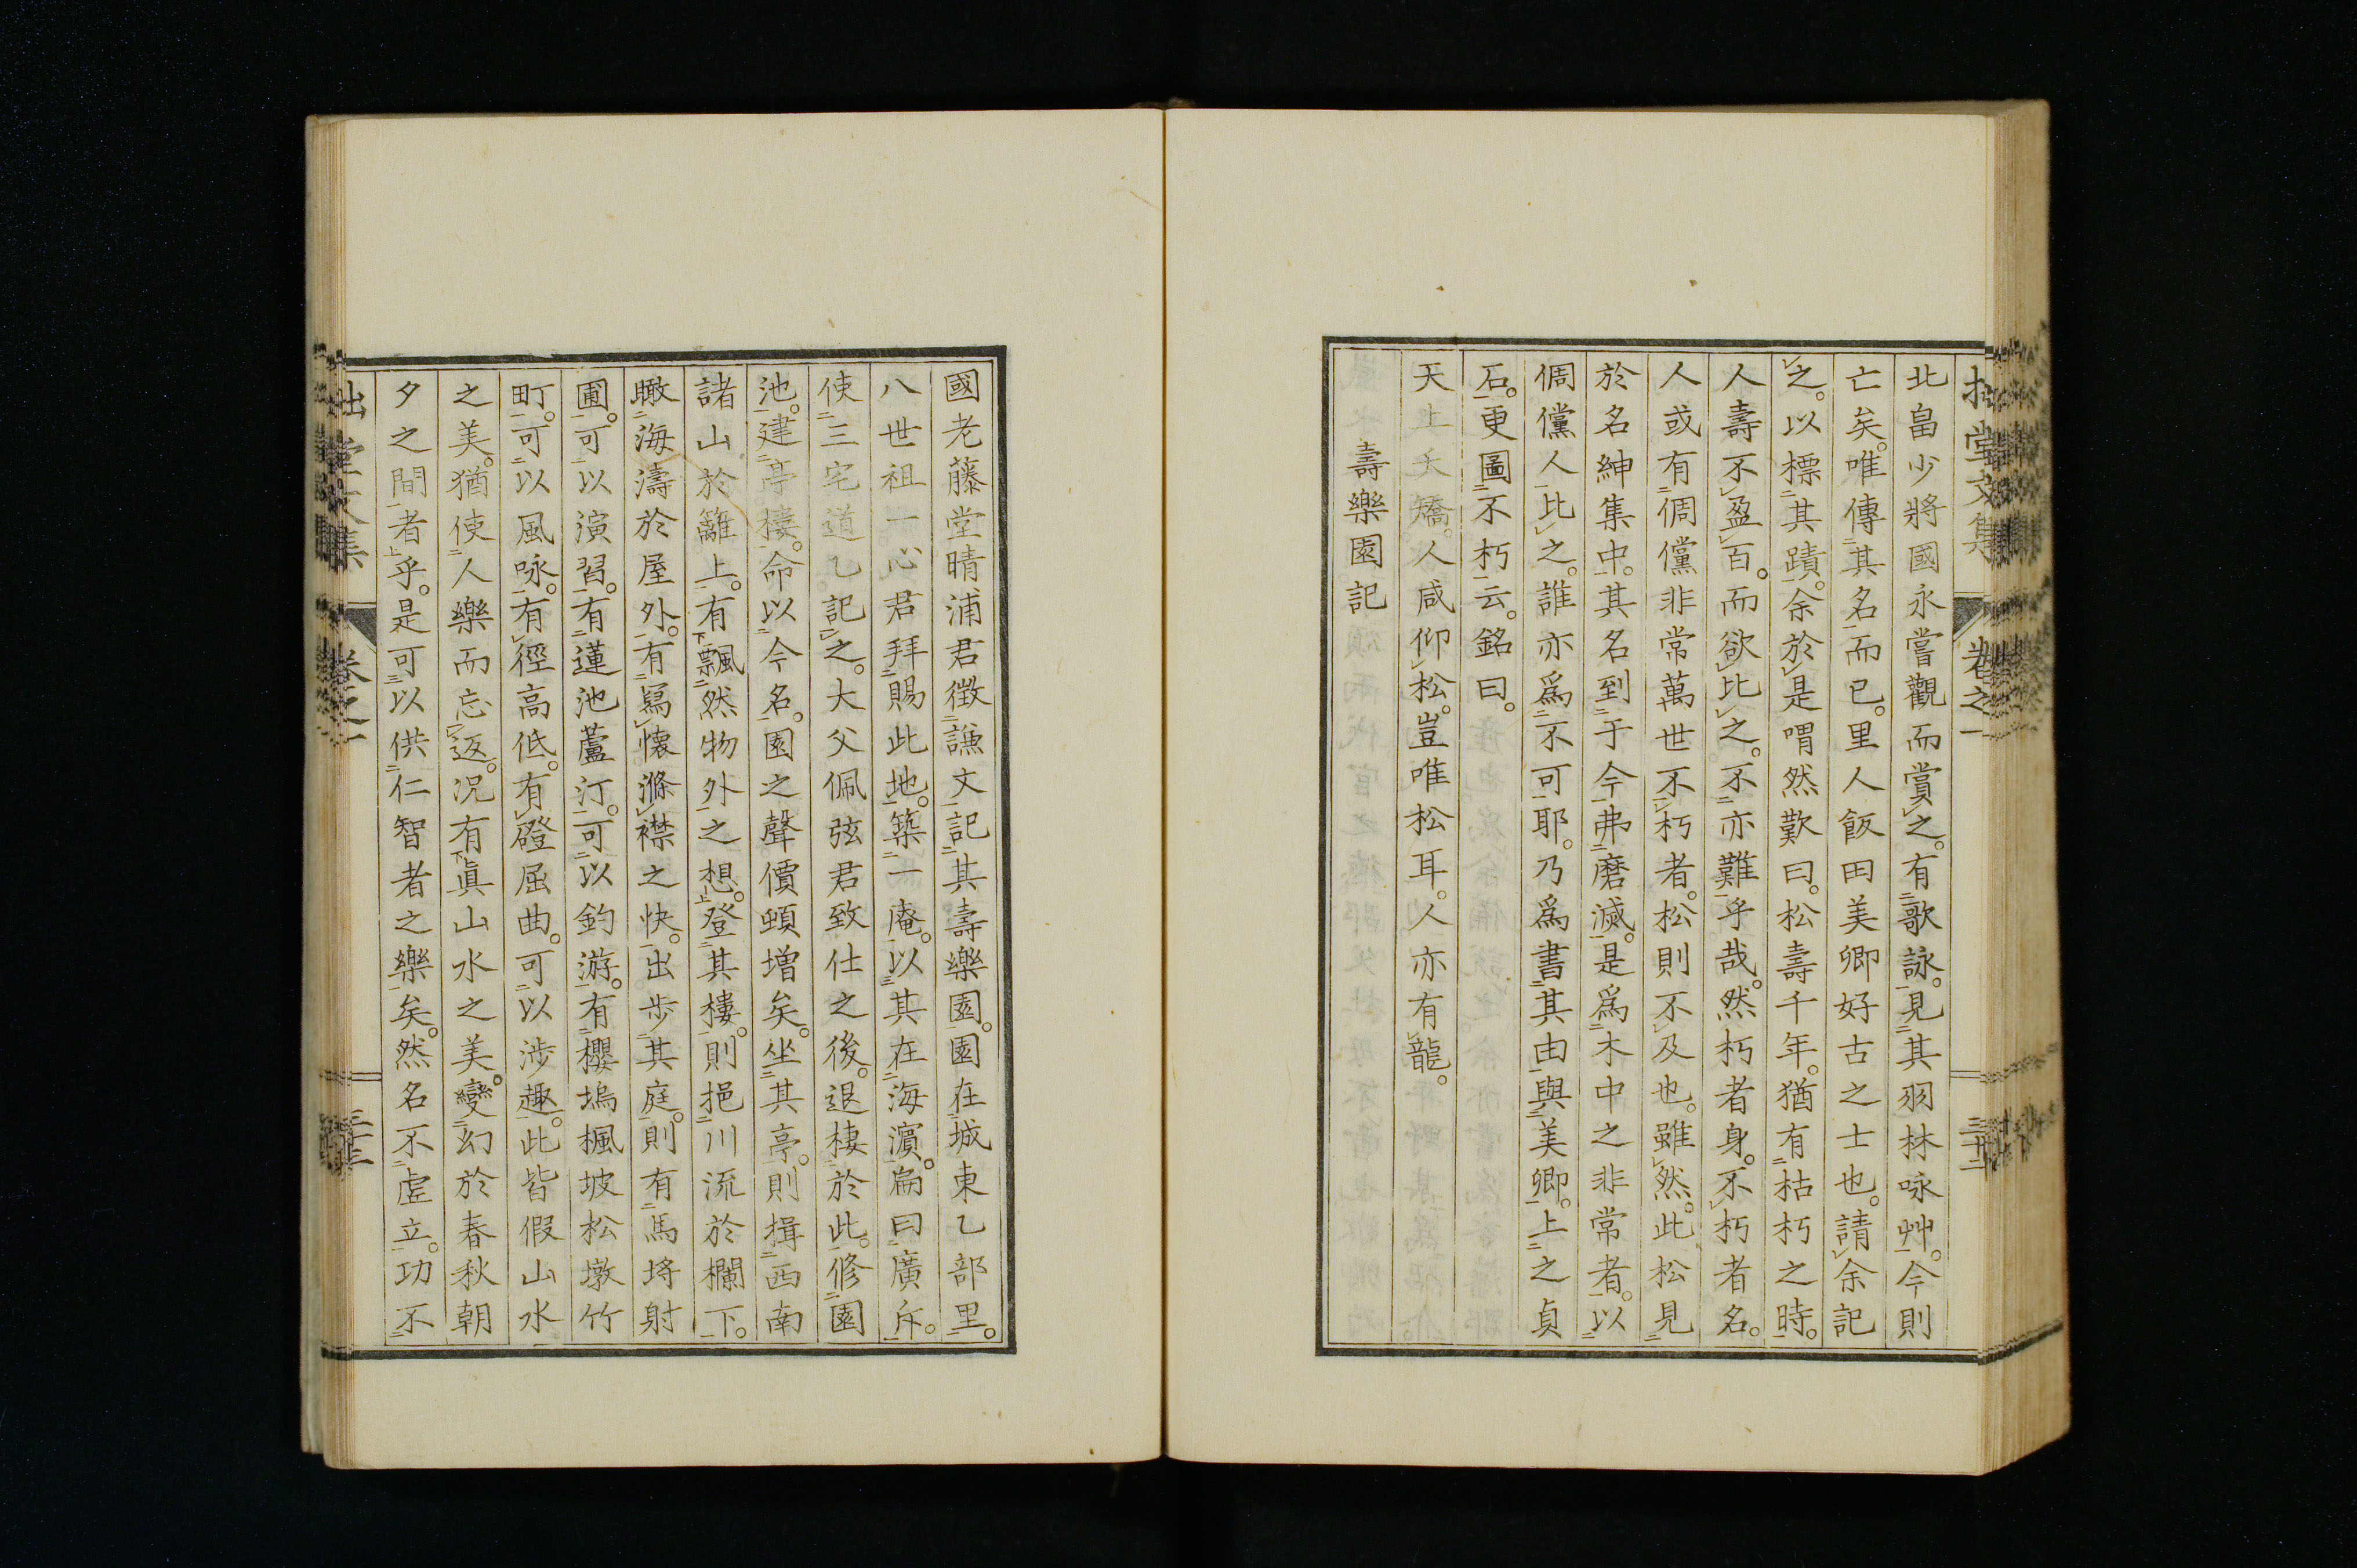 北畠少將國永嘗觀而賞之。有歌詠。見其羽林咏艸。今則
亡矣。唯傳其名而已。里人飯田美卿好古之士也。請余記
之。以標其蹟。余於是喟然歎曰。松壽千年。猶有枯朽之時。
人壽不盈百。而欲比之。不亦難乎哉。然朽者身。不朽者名。
人或有倜儻非常萬世不朽者。松則不及也。雖然。此松見
於名紳集中。其名到于今弗磨滅。是爲木中之非常者。以
倜儻人比之。誰亦爲不可耶。乃爲書其由與美卿。上之貞
石。更圖不朽云。銘曰。
天上夭矯。人咸仰松。豈唯松耳。人亦有龍。
壽樂園記
國老藤堂晴浦君徵謙文記其壽樂園。園在城東乙部里。
八世祖一心君拜賜此地。築一庵。以其在海濵。扁曰廣斥。
使三宅道乙記之。大父佩弦君致仕之後。退棲於此。修園
池。建亭樓。命以今名。園之聲價頓增矣。坐其亭。則揖西南
諸山於籬上。有飄然物外之想。登其樓。則挹川流於欄下。
瞰海濤於屋外。有寫懷滌襟之快。出步其庭。則有馬埒射
圃。可以演習。有蓮池蘆汀。可以釣游。有櫻塢楓坡松墩竹
町。可以風咏。有徑高低。有磴屈曲。可以涉趣。此皆假山水
之美。猶使人樂而忘返。況有眞山水之美。變幻於春秋朝
夕之間者乎。是可以供仁智者之樂矣。然名不虛立。功不